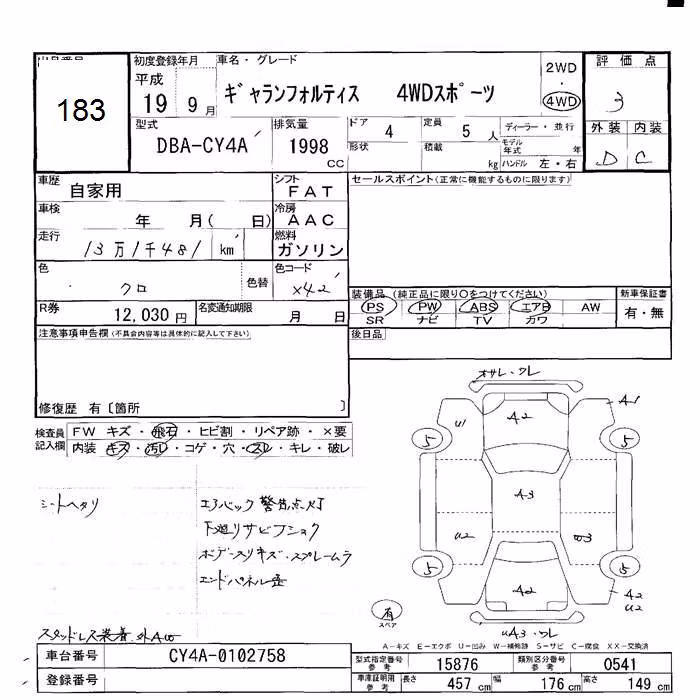 183
初度登録年月 車名・グレード 評価点
平成 19 9月 ギャランフォルティス 4WDスポーツ 2WD 4WD 3
型式 排気量 ドア 定員 ディーラー・並行 外装 内装
DBA-CY4A 1998 CC 4 5人 D C
形状 積載 kg モデル年式 年 ハンドル 左・右
車歴 自家用 シフト FAT セールスポイント(正常に機能するものに限ります)
車検 年 月( 日) 冷房 AAC
走行 13万1千481 km 燃料 ガソリン
色 クロ 色替 色コード X42
装備品 (純正品に限り〇をつけてください) 新車保証書
R券 12,030円 名変通知期限 月 日 PS PW ABS エアB AW 有・無
SR ナビ TV カワ
注意事項申告欄(不具合内容等は具体的に記入して下さい) 後日品
修復歴 有〔箇所 〕
検査員記入欄 FW キズ・飛石・ヒビ割・リペア跡・×要
内装 キズ・汚レ・コゲ・穴・スレ・キレ・破レ
オサレ・ワレ
U1 A2 A1
5 5
A3
U2
5 5
A2 A2 U2
UA3・ワレ
シートヘタリ エアバック警告点灯
下廻りサビフショク
ボデースリキズ・スプレームラ
エンドパネル歪
有 スペア
スタッドレス装着 外AW
A-キズ E-エクボ U-凹み W-補修跡 S-サビ C-腐食 XX-交換済
車台番号 CY4A-0102758 型式指定番号 参考 15876 類別区分番号 参考 0541
登録番号 車庫証明用 参考 長さ 457 cm 幅 176 cm 高さ 149 cm